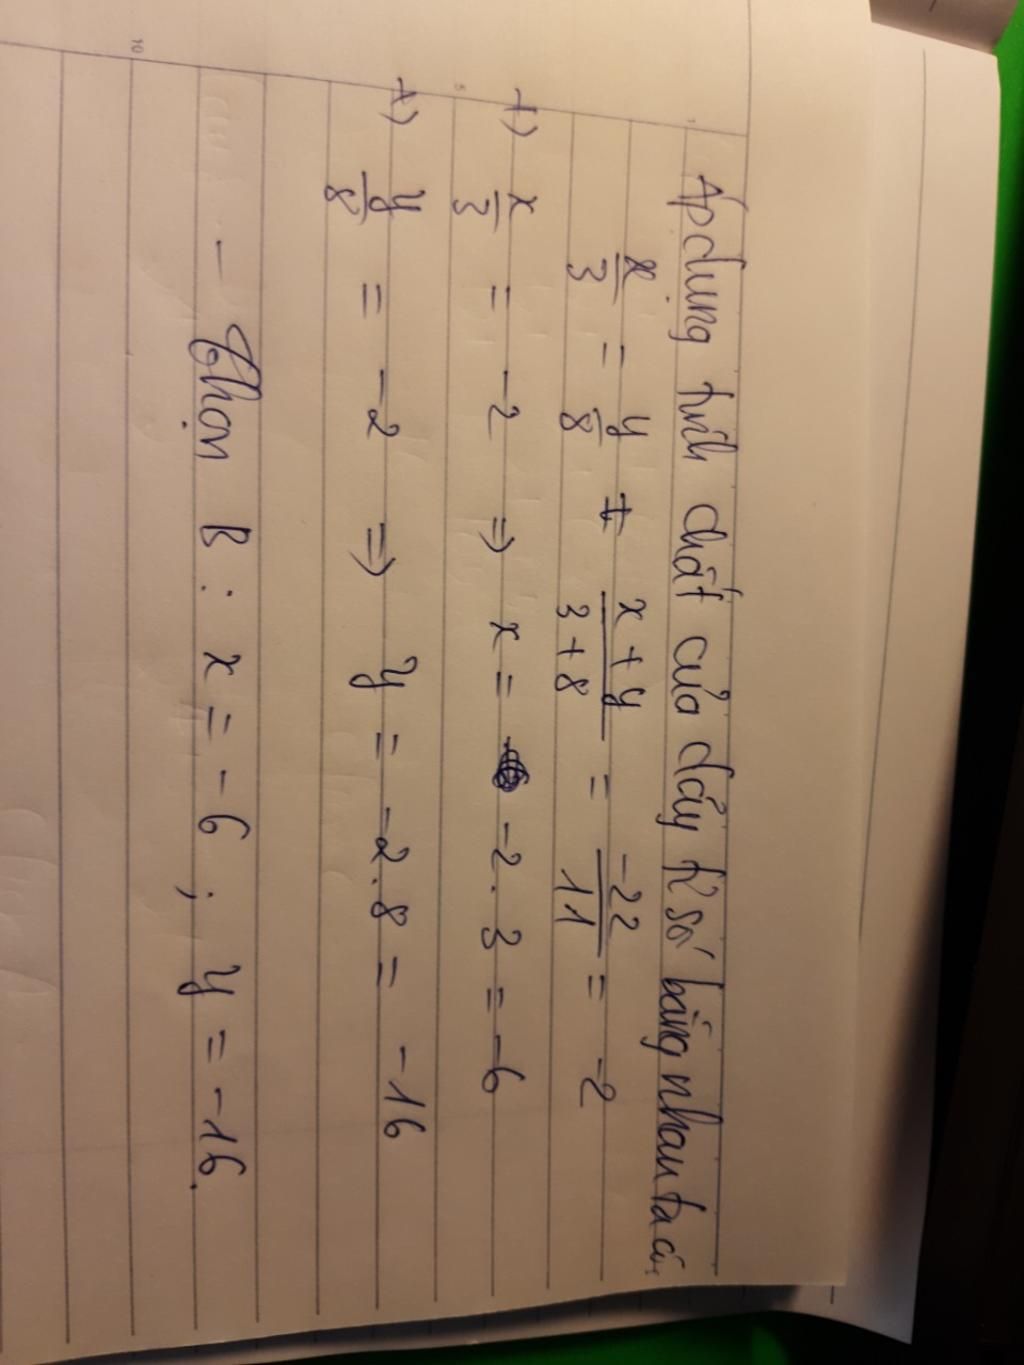 Áp dụng tính chất của dãy tỉ số bằng nhau ta có:
x/3 = y/8 = x+y/3+8 = -22/11 = -2
+) x/3 = -2 => x = -2.3 = -6
+) y/8 = -2 => y = -2.8 = -16
- Chọn B: x = -6; y = -16.
10
5
1